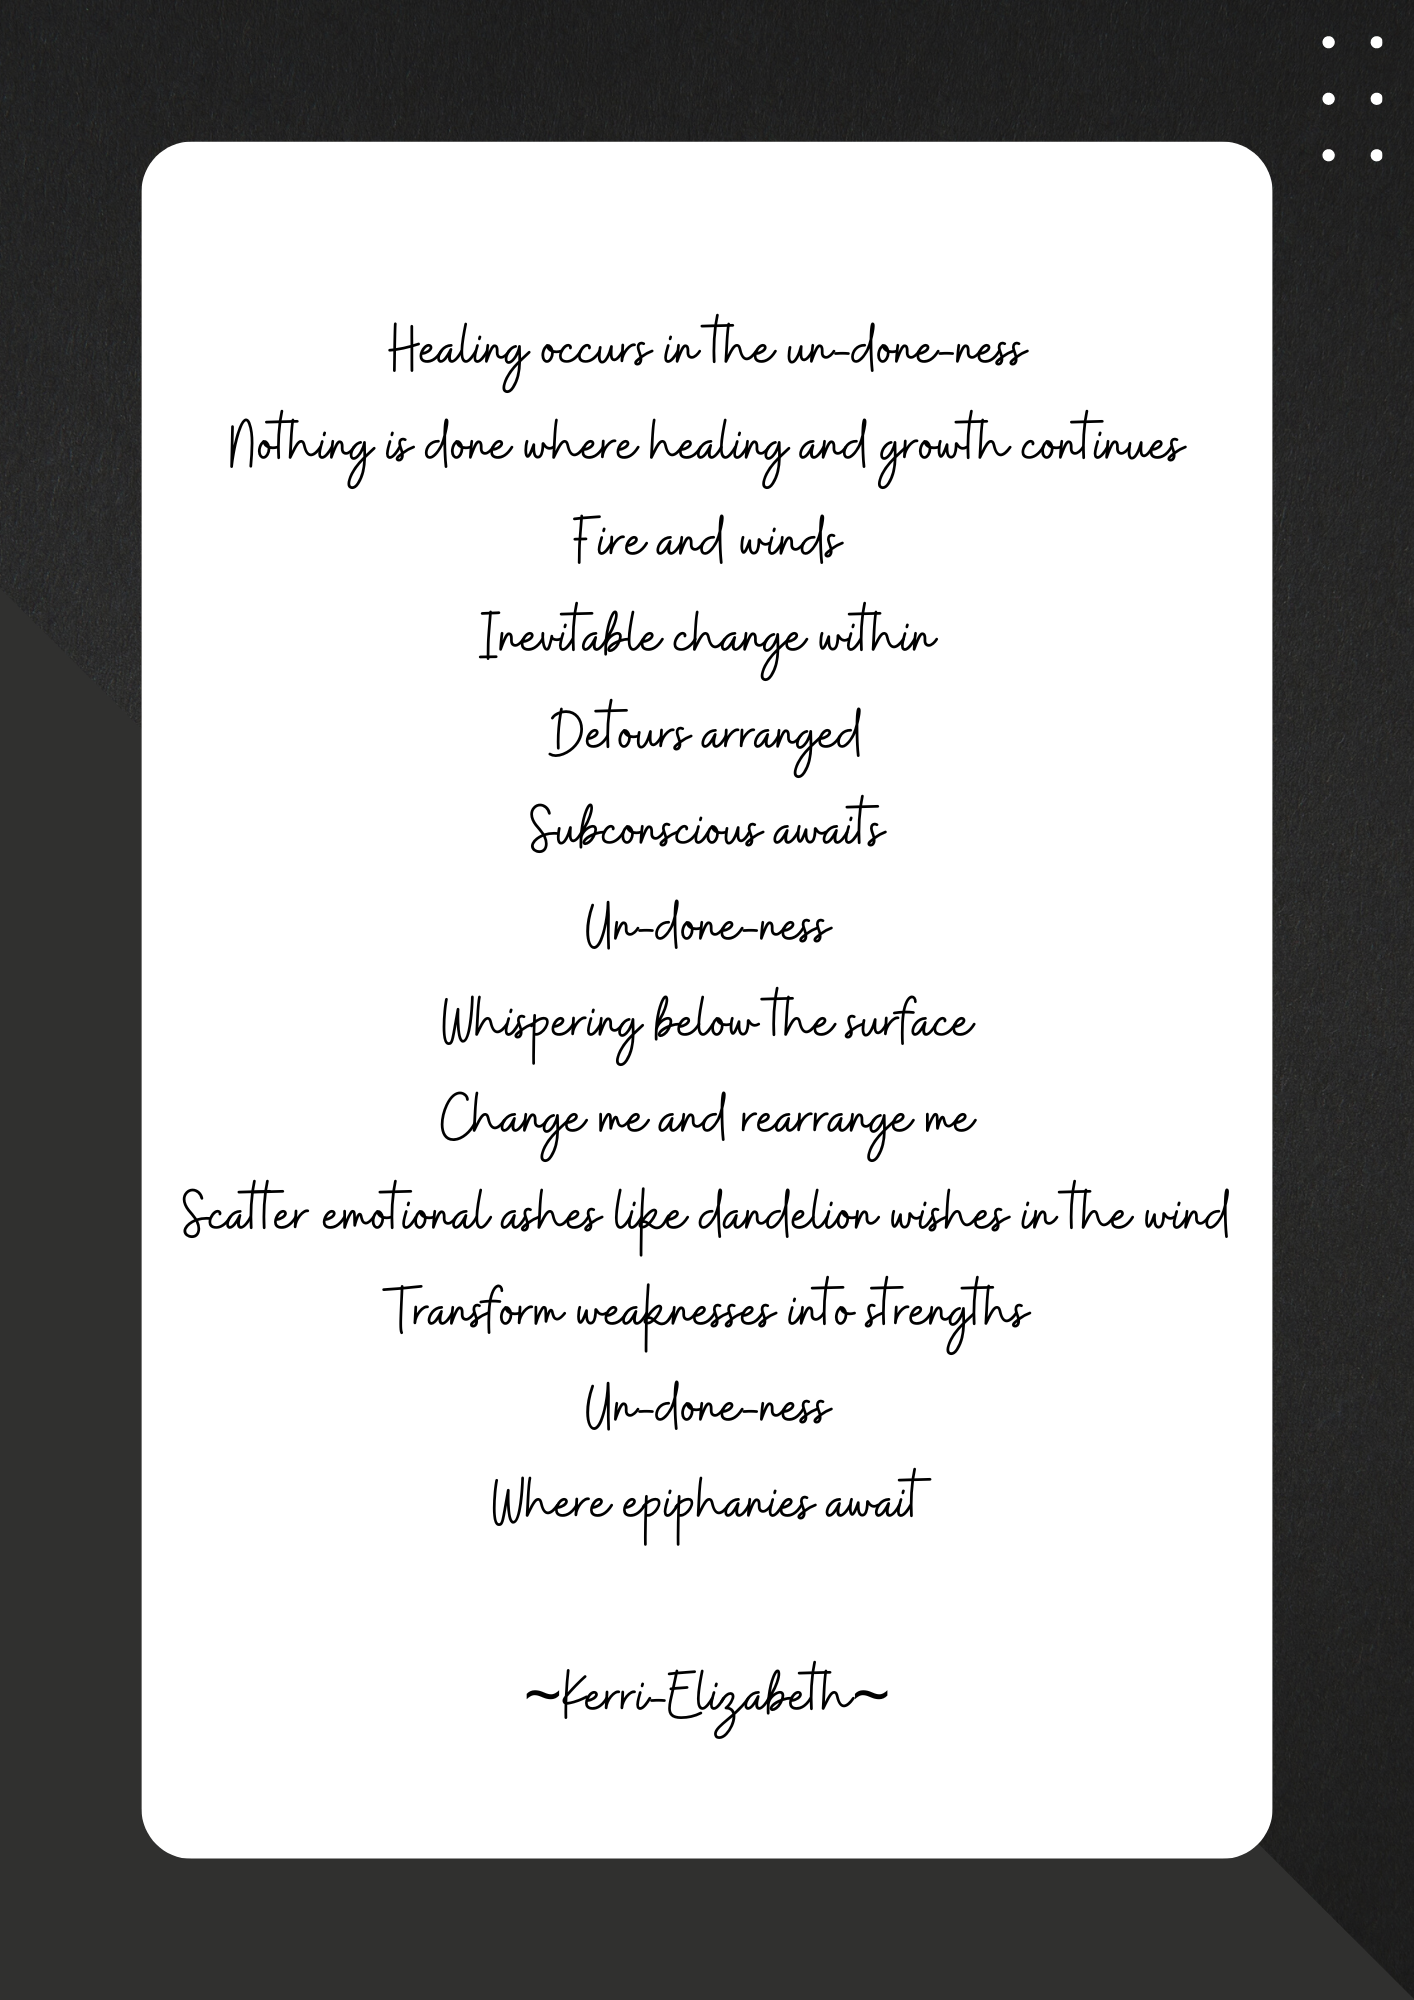 Healing occurs in the un-done-ness
Nothing is done where healing and growth continues
Fire and winds
Inevitable change within
Detours arranged
Subconscious awaits
Un-done-ness
Whispering below the surface
Change me and rearrange me
Scatter emotional ashes like dandelion wishes in the wind
Transform weaknesses into strengths
Un-done-ness
Where epiphanies await
~Kerri-Elizabeth~